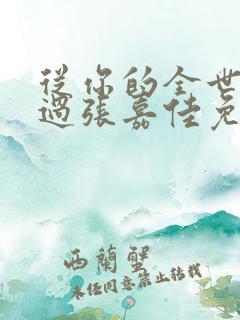 從你的全世
過張嘉佳免
西蘭蟹
未經同意禁止轉載